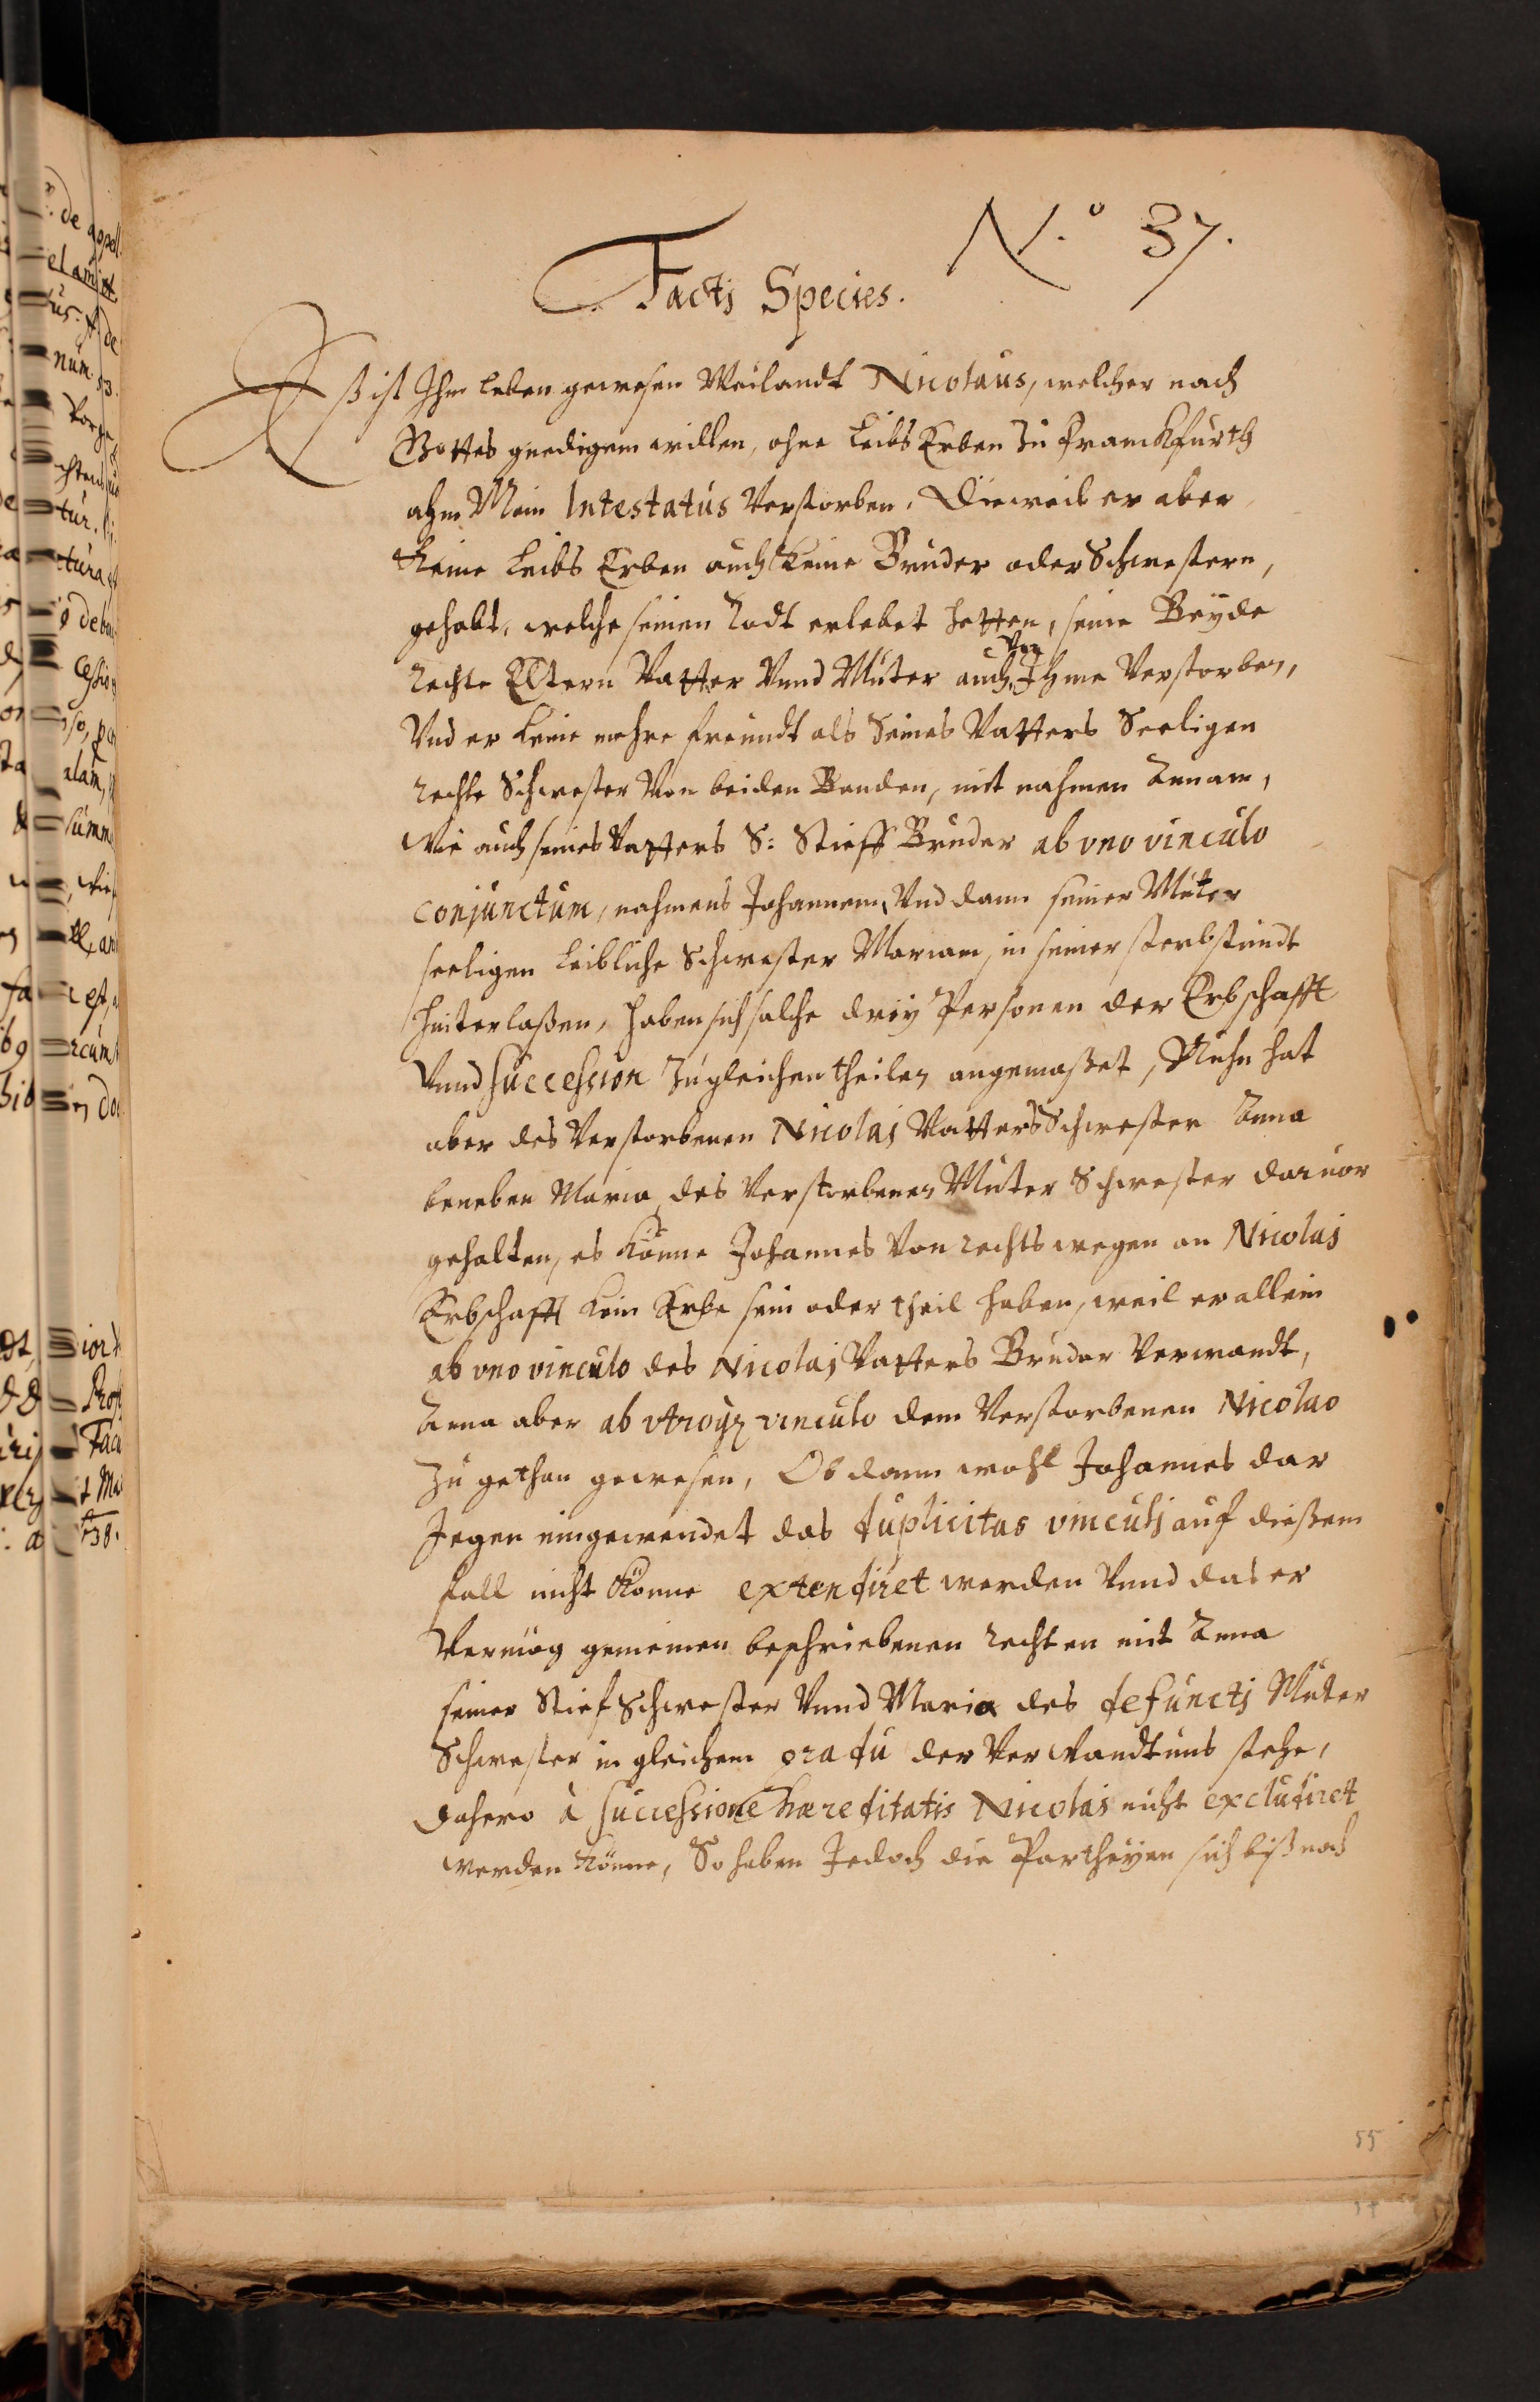 N.o 37.
Factj Species.
Eß ist Ihm leben gewesen Weilandt Nicolaus, welcher nach
Gottes gnedigem willen, ohne Leibs Erben zu Franckfurth
ahm Mein Intestatus verstorben, Dieweil er aber
Keine Leibs Erben auch keine Bruder oder Schwestern,
gehabt, welche seinen todt erlebet hetten, seine Beyde
rechte Eltern Vatter Vnnd Muter auch Vor Ihme Verstorben,
Vnd er keine mehre freundt als Seines Vatters Seeligen
rechte Schwester Von beiden Banden, mit nahmen Annam,
Wie auch seines Vatters S: Stieff Bruder ab vno vinculo
conjunctum, nahmens Johannem, Vnd dann seiner Muter
seeligen leibliche Schwester Mariam, in seiner sterbstundt
hinterlaßen, haben sich solche drey Personen der Erbschafft
Vnnd succession zu gleichen theilen angemaßet, Nuhn hat
aber des Verstorbenen Nicolaj Vatters Schwester Anna
beneben Maria, des Verstorbenen Muter Schwester daruor
gehalten, es könne Johannes Von rechts wegen an Nicolaj
Erbschafft kein Erbe sein oder theil haben, weil er allein
ab vno vinculo des Nicolaj Vatters Bruder Verwandt,
Anna aber ab vtroq₃ vinculo dem Verstorbenen Nicolao
zu gethan gewesen, Ob dann wohl Johannes dar
Jegen eingewendet das duplicitas vinculj auf dießem
fall nicht könne extendiret werden Vnnd das er
Vermög gemeinen beschriebenen rechten mit Anna
seiner Stief Schwester Vnnd Maria des defunctj Muter
Schwester in gleichem gradu der Verwandtnus stehe,
dahero à successione hæreditatis Nicolaj nicht excludiret
werden könne, So haben Jedoch die Partheyen sich biß noch
55